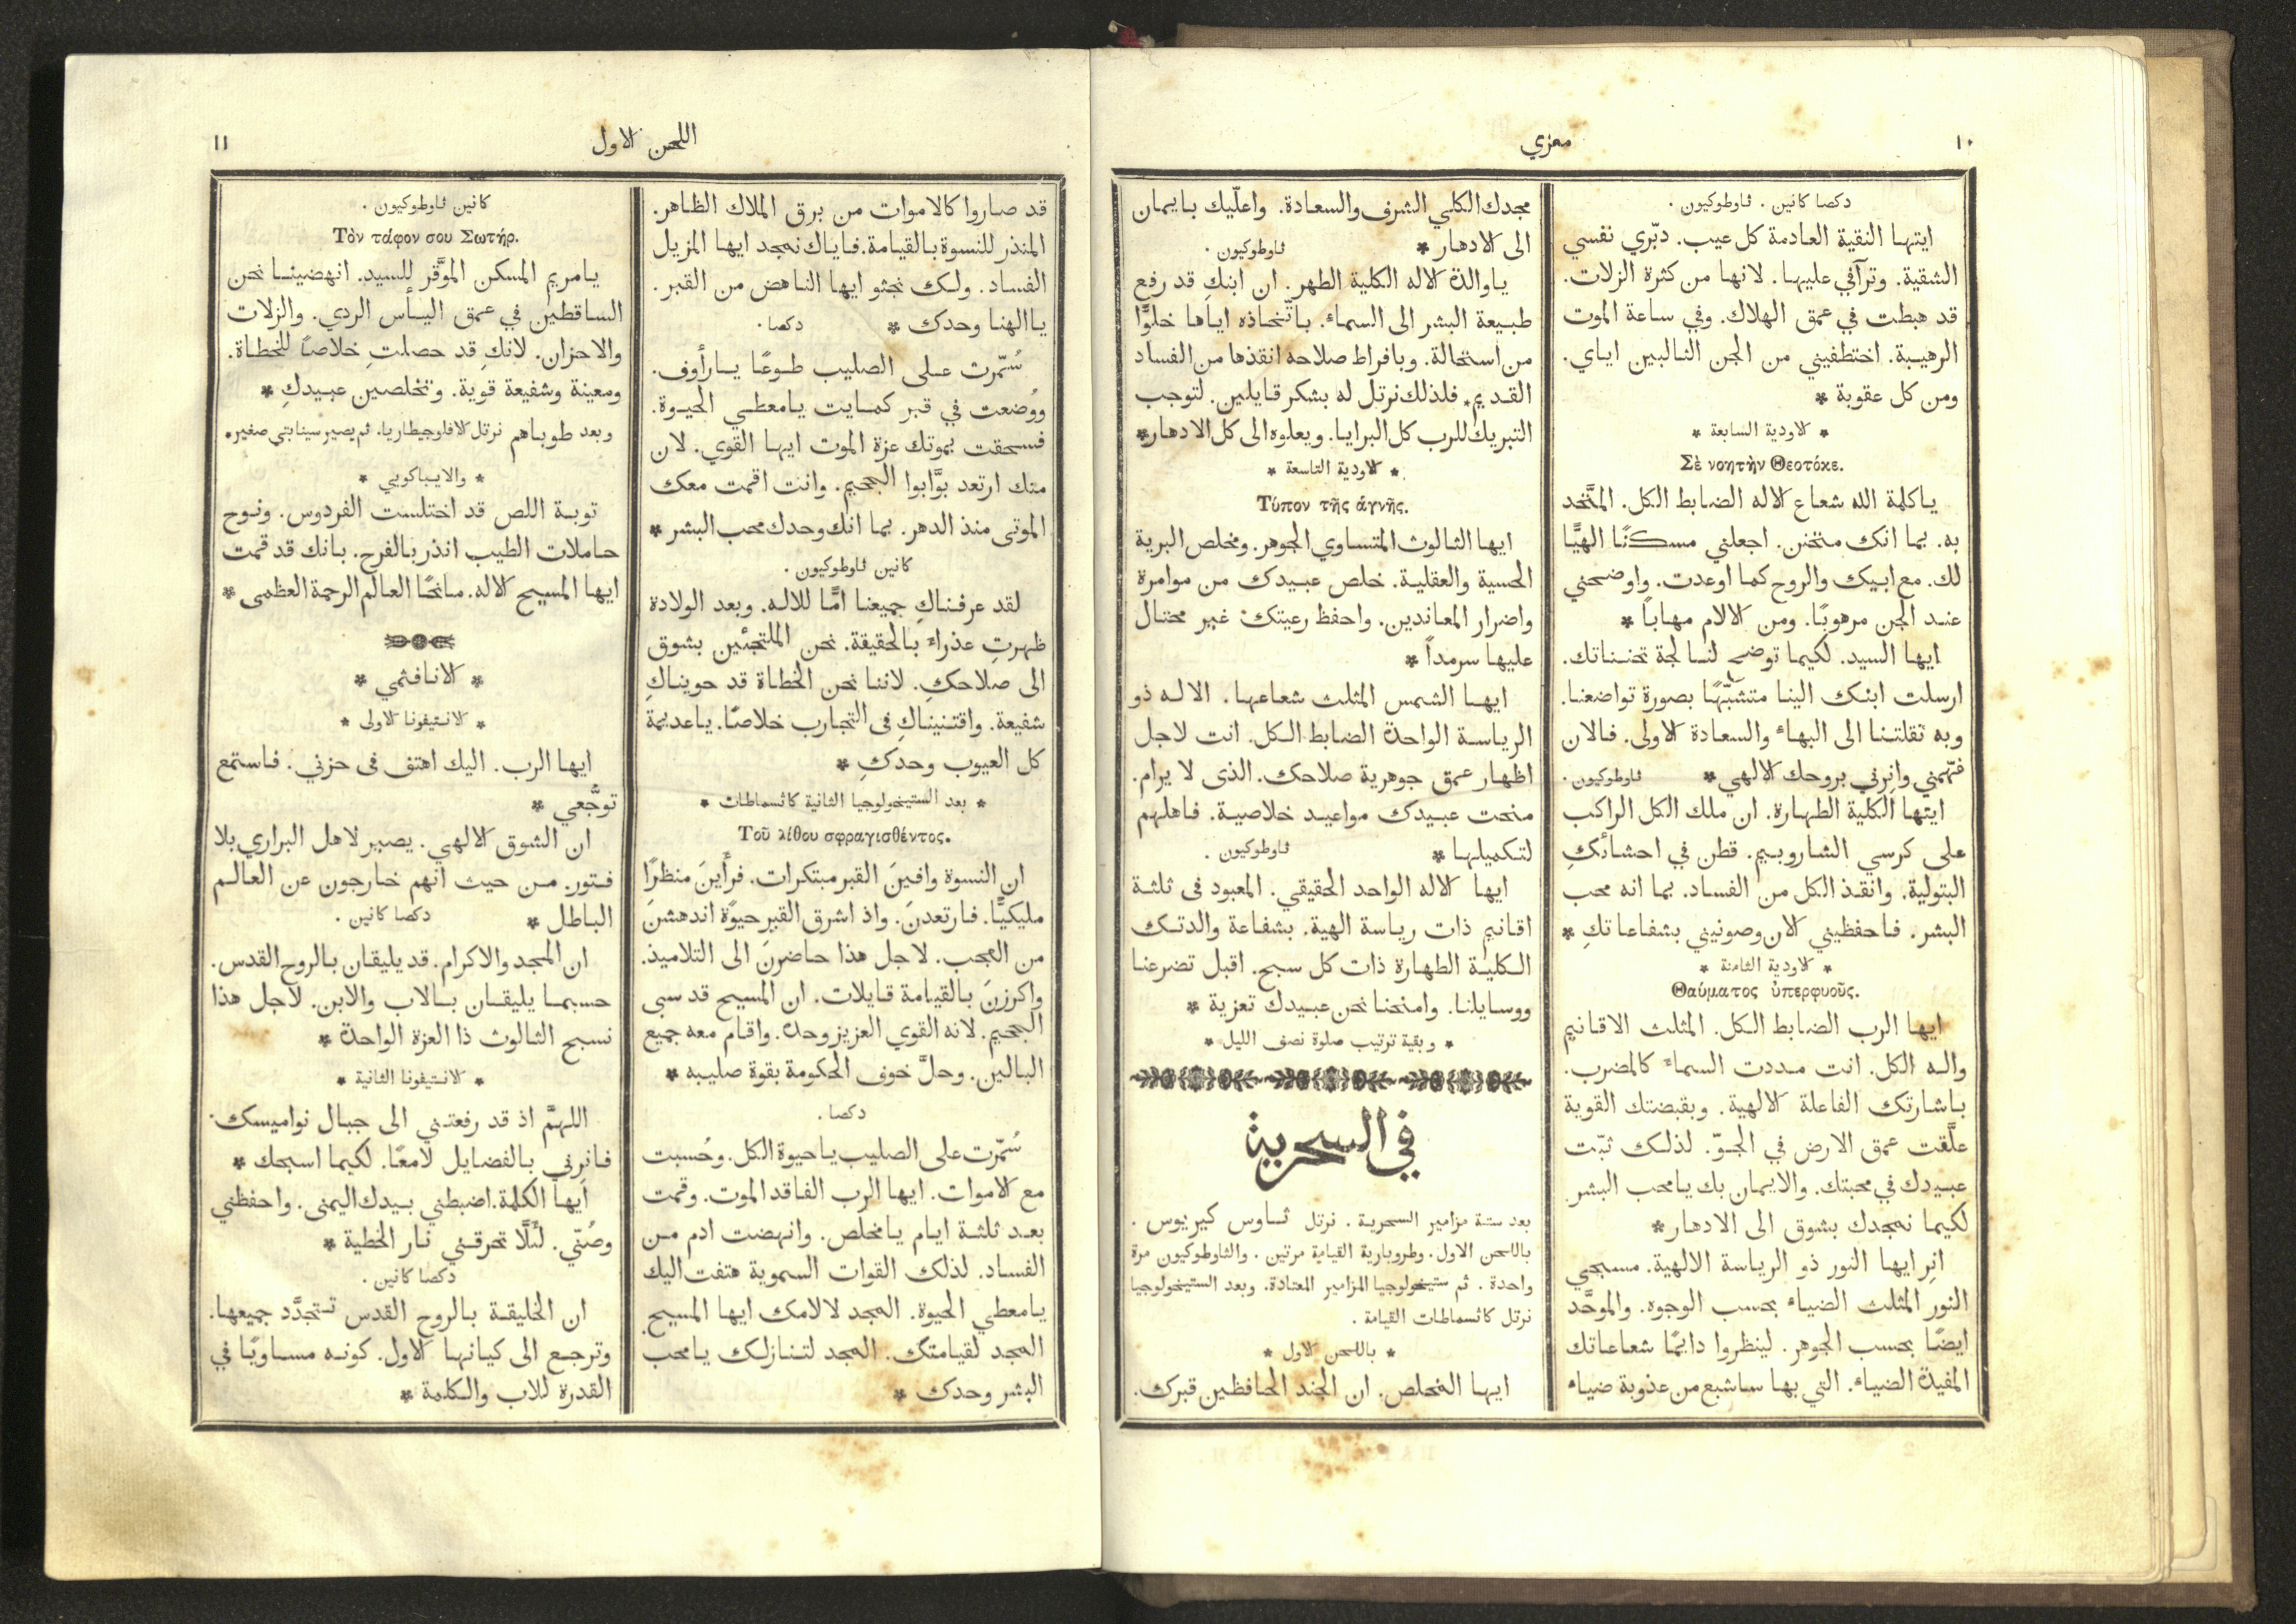 ١٠
معزي
دكصا كانين . ثاوطوكيون .
ايتها النقية العادمة كل عيب. دبّري نفسي
الشقية. وترآفي عليها. لانها من كثرة الزلات.
قد هبطت في عمق الهلاك. وفي ساعة الموت
الرهيبة. اختطفيني من الجن الثالبين اياي.
ومن كل عقوبة *
* الاودية السابعة *
Σὲ νοητὴν Θεοτόκε.
ياكلمة الله شعاع الاله الضابط الكل. المتَّحد
به. بما انك متحنن. اجعلني مسكنًا الهيًّا
لك. مع ابيك والروح كما اوعدت. واوضحني
عند الجن مرهوبًا. ومن الالام مهاباً *
ايها السيد. لكيما توضح لنا لجة تحننك.
ارسلت ابنك الينا متشبّهًا بصورة تواضعنا.
وبه نقلتنا الى البهاء والسعادة الاولى. فالان
فهّمني وانرني بروحك الالهي * ثاوطوكيون.
ايتها الكلية الطهارة. ان ملك الكل الراكب
على كرسي الشاروبيم. قطن في احشائكِ
البتولية. وانقذ الكل من الفساد. بما انه محب
البشر. فاحفظيني الان وصونيني بشفاعاتكِ *
* الاودية الثامنة *
Θαύματος ὑπερφυοῦς.
ايها الرب الضابط الكل. المثلث الاقانيم
واله الكل. انت مددت السماء كالمضرب.
باشارتك الفاعلة الالهية. وبقبضتك القوية
علَّقت عمق الارض في الجوّ. لذلك ثبّت
عبيدك في محبتك. والايمان بك يامحب البشر.
لكيما نمجدك بشوق الى الادهار *
انِر ايها النور ذو الرياسة الالهية. مسبحي
النور المثلث الضياء بحسب الوجوه. والموحَّد
ايضًا بحسب الجوهر. لينظروا دايمًا شعاعاتك
المفيدة الضياء. التي بها ساشبع من عذوبة ضياء
مجدك الكلي الشرف والسعادة. واعلّيك بايمان
الى الادهار * ثاوطوكيون.
ياوالدة الاله الكلية الطهر. ان ابنكِ قد رفع
طبيعة البشر الى السماء. باتّخاذه اياها خلوًا
من استحالة. وبافراط صلاحه انقذها من الفساد
القديم. فلذلك نرتل له بشكر قايلين. لتوجب
التبريك للرب كل البرايا. ويعلوه الى كل الادهار *
* الاودية التاسعة *
Τύπον τῆς ἁγνῆς.
ايها الثالوث المتساوي الجوهر. ومخلص البرية
الحسية والعقلية. خلص عبيدك من موامرة
واضرار المعاندين. واحفظ رعيتك غير محتال
عليها سرمداً *
ايها الشمس المثلث شعاعها. الاله ذو
الرياسة الواحدة الضابط الكل. انت لاجل
اظهار عمق جوهرية صلاحك. الذى لا يرام.
منحت عبيدك مواعيد خلاصية. فاهلهم
لتكميلها * ثاوطوكيون .
ايها الاله الواحد الحقيقي. المعبود فى ثلثة
اقانيم ذات رياسة الهية. بشفاعة والدتك
الكلية الطهارة ذات كل سبح. اقبل تضرعنا
ووسايلنا. وامنحنا نحن عبيدك تعزية *
* وبقية ترتيب صلوة نصف الليل *
في السحرية
بعد ستة مزامير السحرية . نرتل ثاوس كيريوس .
باللحن الاول. وطروبارية القيامة مرتين . والثاوطوكيون مرة
واحدة . ثم ستيخولوجيا المزامير المعتادة. وبعد الستيخولوجيا
نرتل كاثسماطات القيامة .
* باللحن الاول *
ايها المخلص. ان الجند الحافظين قبرك.
اللحن الاول
١١
قد صاروا كالاموات من برق الملاك الظاهر.
المنذر للنسوة بالقيامة. فاياك نمجد ايها المزيل
الفساد. ولك نجثو ايها الناهض من القبر.
ياالهنا وحدك * دكصا.
سُمّرت على الصليب طوعًا يارأوف.
ووُضعت في قبر كمايت يامعطي الحيوة.
فسحقت بموتك عزة الموت ايها القوي. لان
منك ارتعد بوَّابوا الجحيم. وانت اقمت معك
الموتى منذ الدهر. بما انك وحدك محب البشر *
كانين ثاوطوكيون .
لقد عرفناكِ جميعنا امًّا للاله. وبعد الولادة
ظهرتِ عذراء بالحقيقة. نحن الملتجئين بشوق
الى صلاحكِ. لاننا نحن الخطاة قد حويناكِ
شفيعة. واقتنيناكِ فى التجارب خلاصًا. ياعديمة
كل العيوب وحدكِ *
* بعد الستيخولوجيا الثانية كاثسماطات *
Τοῦ λίθου σφραγισθέντος.
ان النسوة وافينَ القبر مبتكرات. فرأَينَ منظرًا
مليكيًّا. فارتعدنَ. واذ اشرق القبر حيوًة اندهشنَ
من العجب. لاجل هذا حاضرنَ الى التلاميذ.
واكرزنَ بالقيامة قايلات. ان المسيح قد سبى
الجحيم. لانه القوي العزيز وحده. واقام معه جميع
البالين. وحلَّ خوف الحكومة بقوة صليبه *
دكصا .
سُمّرت على الصليب ياحيوة الكل. وحُسبت
مع الاموات. ايها الرب الفاقد الموت. وقمت
بعد ثلثة ايام يامخلص. وانهضت ادم من
الفساد. لذلك القوات السموية هتفت اليك
يامعطي الحيوة. المجد لالامك ايها المسيح.
المجد لقيامتك. المجد لتنازلك يامحب
البشر وحدك *
كانين ثاوطوكيون .
Τὸν τάφον σου Σωτήρ.
يامريم المسكن الموَّقر للسيد. انهضينا نحن
الساقطين في عمق اليأس الردي. والزلات
والاحزان. لانكِ قد حصلتِ خلاصًا للخطاة.
ومعينة وشفيعة قوية. وتخلصين عبيدكِ *
وبعد طوباهم نرتل الافلوجيطاريا. ثم يصير سينابتي صغير.
* والايباكويي *
توبة اللص قد اختلست الفردوس. ونوح
حاملات الطيب انذر بالفرح. بانك قد قمت
ايها المسيح الاله. مانحًا العالم الرحمة العظمى *
* الانافثمي *
* الانتيفونا الاولى *
ايها الرب. اليك اهتف فى حزني. فاستمع
توجُّعي *
ان الشوق الالهي. يصير لاهل البراري بلا
فتور. من حيث انهم خارجون عن العالم
الباطل * دكصا كانين .
ان المجد والاكرام. قد يليقان بالروح القدس.
حسبما يليقان بالاب والابن. لاجل هذا
نسبح الثالوث ذا العزة الواحدة *
* الانتيفونا الثانية *
اللهمَّ اذ قد رفعتني الى جبال نواميسك.
فانرني بالفضايل لامعًا. لكيما اسبحك *
ايها الكلمة. اضبطني بيدك اليمنى. واحفظني
وصُنّي. لئَلَّا تحرقني نار الخطية *
دكصا كانين .
ان الخليقة بالروح القدس تتجدَّد جميعها.
وترجع الى كيانها الاول. كونه مساويًا في
القدرة للاب والكلمة *